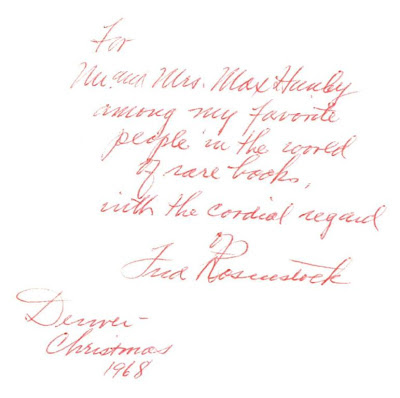 For
Mr. and Mrs. Max Hunley
among my favorite
people in the world
of rare books,
with the cordial regard
of
Fred Rosenstock
Denver -
Christmas
1968